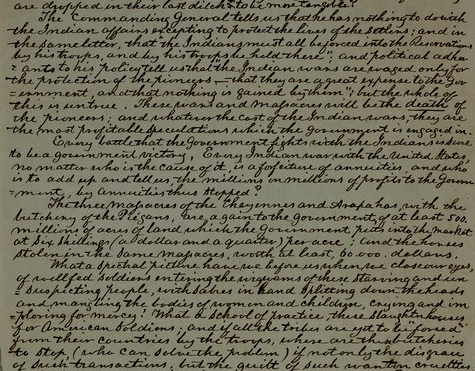 are dropped in their last ditch to be more tangible?
The Commanding General tells us that he has nothing to do with
the Indian affairs excepting to protect the lives of the settlers; and in
the same letter, that the Indians must all be forced into the Reservations
by his troops, and by his troops be held there"; and political adhe=
=rants to his policy tell us that the Indian wars are waged only for
the protection of the pioneers — that they are a great expense to the Gov=
=ernment, and that nothing is gained by them"; but the whole of
this is untrue. These wars and massacres will be the death of
the pioneers; and whatever the cost of the Indian wars, they are
the most profitable speculations which the government is engaged in.
Every battle that the Government fights with the Indians is sure
to be a government victory, Every Indian war with the United States,
no matter who is the cause of it, is a forfeiture of annuities, and who
is to add up and tell us the millions on millions of profits to the Govern=
=ment, by annuities thus stopped?
The three massacres of the Cheyennes and Arapahos, with the
butchery of the Piegans, are a gain to the government, of at least 500,
millions of acres of land which the Government puts into the market
at Six Shillings (a dollar and a quarter) per acre; and the horses
stolen in the same massacres, worth at least, 60.000. dollars.
What a spectral picture have we before us when we close our eyes,
of rallied Soldiers entering the wigwams of these starving and un
= suspecting people, with sabres in hand splitting down the heads,
and mangling the bodies of women and children, crying and im=
=ploring for mercy! What a School of practice these Slaughterhouses
for American Soldiers; and if all the tribes are yet to be forced
from their countries by the troops, where are these butcheries
to stop, (who can solve the problem) if not only the disgrace
of such transactions, but the guilt of such wanton cruelties